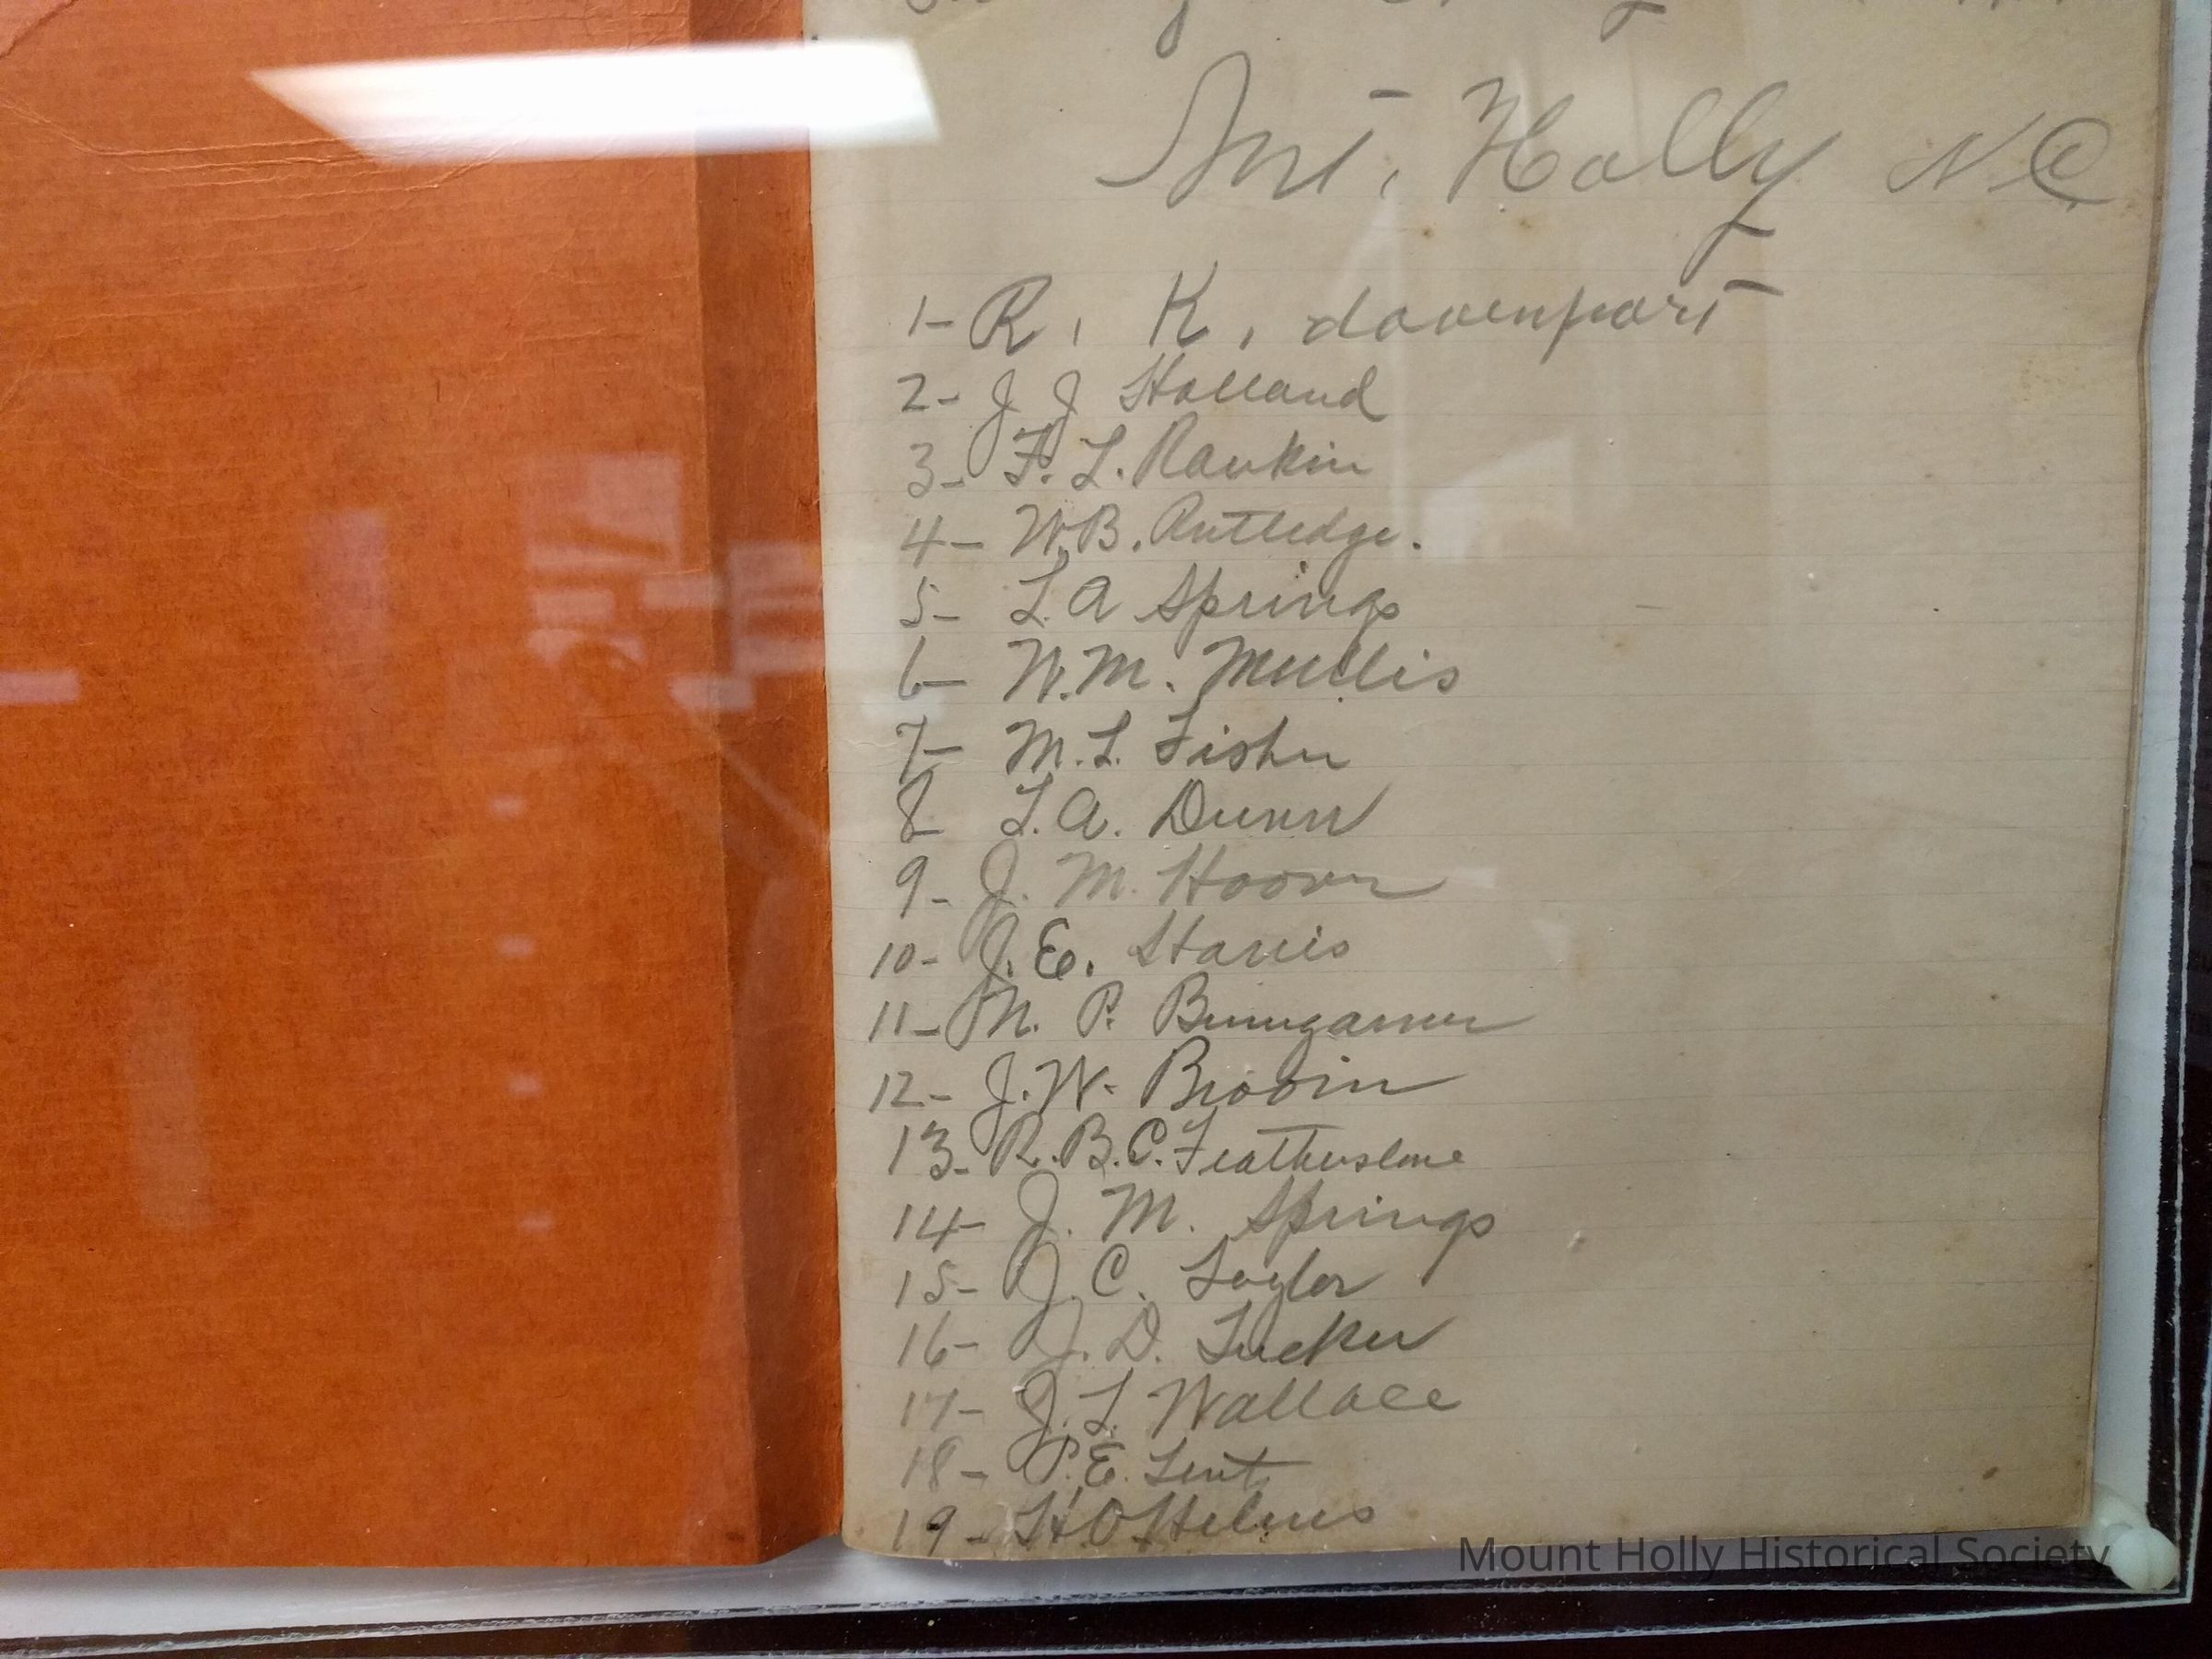 Mt. Holly NC
1- R. K. davenport
2- J J Holland
3- F. L. Rankin
4- W.B. Rutledge.
5- L. A Springs
6- W. M. Mullis
7- M. L. Fisher
8 L. A. Dunn
9- J. M. Hoover
10- J. E.
11- M. P. Bumgarner
12- J. W.
13- R. B. C. Featherstone
14- J. M. Springs
15- J. C. Taylor
16- J. D. Tucker
17- J. L. Wallace
18- P. E.
19- H. O Helms
Mount Holly Historical Society